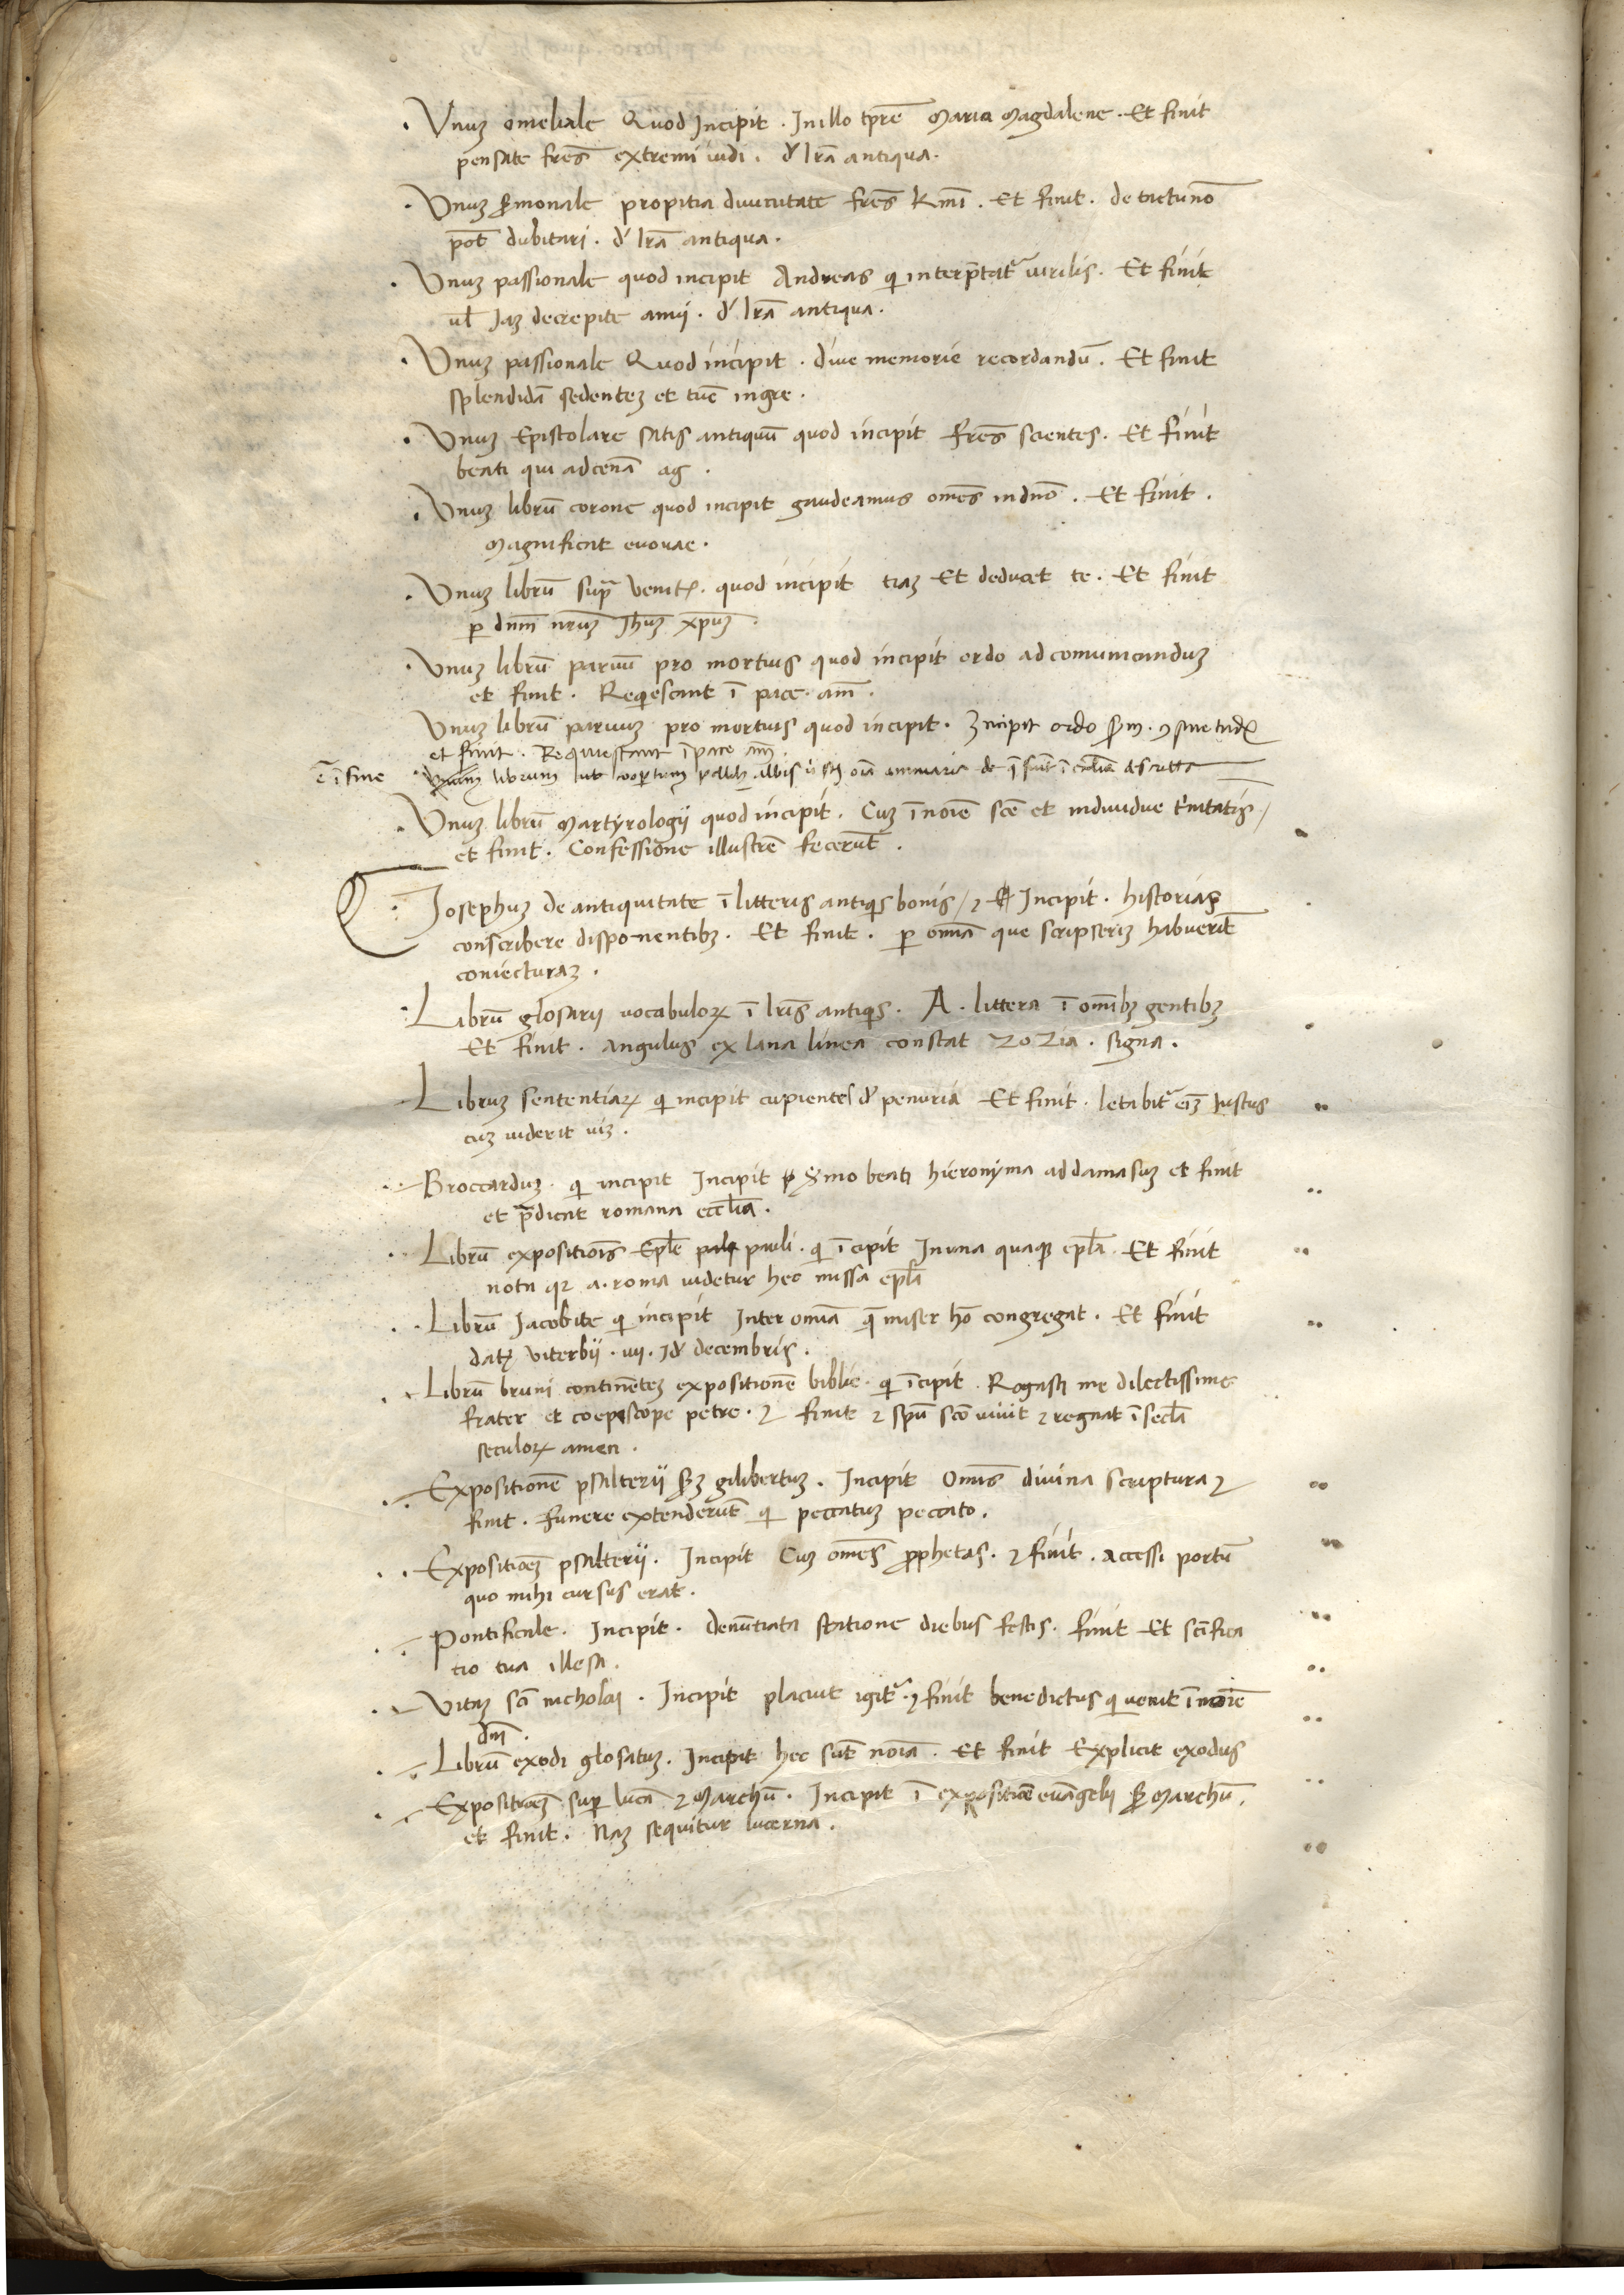 · Vnuȝ omeliale Quod Incipit · In illo tp̄re Maria Magdalene · Et finit
pensate fr̄es extremi iudi · d' lr̄a antiqua ·
· Vnuȝ s̄monale propitia diuinitate fr̄es k̄mi · Et finit · de tactu nō
pōt dubitari · d' lr̄a antiqua ·
· Vnuȝ passionale quod incipit Andreas qi interp̄tat̄ uirilis · Et finit
ul̄ Jaȝ decrepite annij · d' lr̄a antiqua ·
· Vnuȝ passionale Quod incipit · diue memorie recordandū · Et finit
splendidā sedenteȝ et tūc ingre ·
· Vnuȝ Epistolare satis antiquū quod incipit fr̄es scientes · Et finit
beati qui ad cenā ag ·
· Vnuȝ librū corone quod incipit gaudeamus om̄es in dn̄o · Et finit ·
Magnificat euouae ·
· Vnuȝ librū sup̄ Venitꝭ · quod incipit tiaȝ Et deducet te · Et finit
ꝑ dn̄m nr̄uȝ Jh̄uȝ xp̄uȝ ·
· Vnuȝ librū paruū pro mortuis quod incipit ordo ad comunicanduȝ
et finit · Reqiescant ī pace · am̄ ·
Vnuȝ librū paruuȝ pro mortuis quod incipit · Incipit ordo
et finit · Requiescant ī pace am̄ ·
ē ī fine Vnum librum coopertum albis oīa de
· Vnuȝ librū Martyrologij quod incipit · Cuȝ ī noīe scē et indiuidue t̄nitatis /
et finit · Confessione illustrē fecerūt ·
· Josephuȝ de antiquitate ī litteris antiqis bonis / ⁊ Incipit · historias
conscribere disponentibȝ · Et finit · ꝑ om̄ia que scripseriȝ habuerīt
coniecturaȝ ·
· Librū glosarij uocabuloꝝ ī lr̄is antiqis · A · littera ī om̄ibȝ gentibȝ
Et finit · Angulus ex lana linea constat zozia · signa ·
Libruȝ sententiaꝝ qi incipit cupientes d' penuria Et finit · letabit̄ eīȝ Justus
cuȝ uiderit uiȝ ·
· Broccarduȝ · qi incipit Incipit s̄mo beati hieronyma ad damasuȝ et finit
et p̄dicat romana ecc̄lia ·
· Librū expositiōis Ep̄le pauli · qi īcipit In una quaqꝫ ep̄la Et finit
nota qꝛ a · roma uidetur hec missa ep̄la
· Librū Jacobite qi incipit Inter om̄ia q̄ miser hō congregat · Et finit
datꝭ Viterbij · iiij · Jd' decembris ·
· Librū bruni continēteȝ expositionē biblie · qi īcipit · Rogasti me dilectissime
frater et coepiscope petre · ⁊ finit ⁊ spū scō uiuit ⁊ regnat ī secl̄a
seculoꝝ amen ·
· Expositionē psalterij s̄ȝ gilibertuȝ · Incipit Om̄is diuina scriptura ⁊
finit · funere extenderūt qi peccatuȝ peccato ·
· · Expositiōeȝ psalterij · Incipit Cuȝ om̄es ꝓphetas · ⁊ finit · accessi portū
quo mihi cursus erat ·
· Pontificale · Incipit · denūtiata statione diebus festis · finit Et sc̄ifica
tio tua illesa ·
· Vitaȝ sc̄i nicholai · Incipit placuit igit̄ · ⁊ finit benedictus qi uenit ī noīe
dm̄ ·
· Librū exodi glosatuȝ · Incipit hec sūt noīa · Et finit Explicit exodus
· Expositiōeȝ suꝑ lucā ⁊ Marchū · Incipit ī expositiōe euāgelij s̄ Marchū ·
et finit · Naȝ sequitur lucerna ·